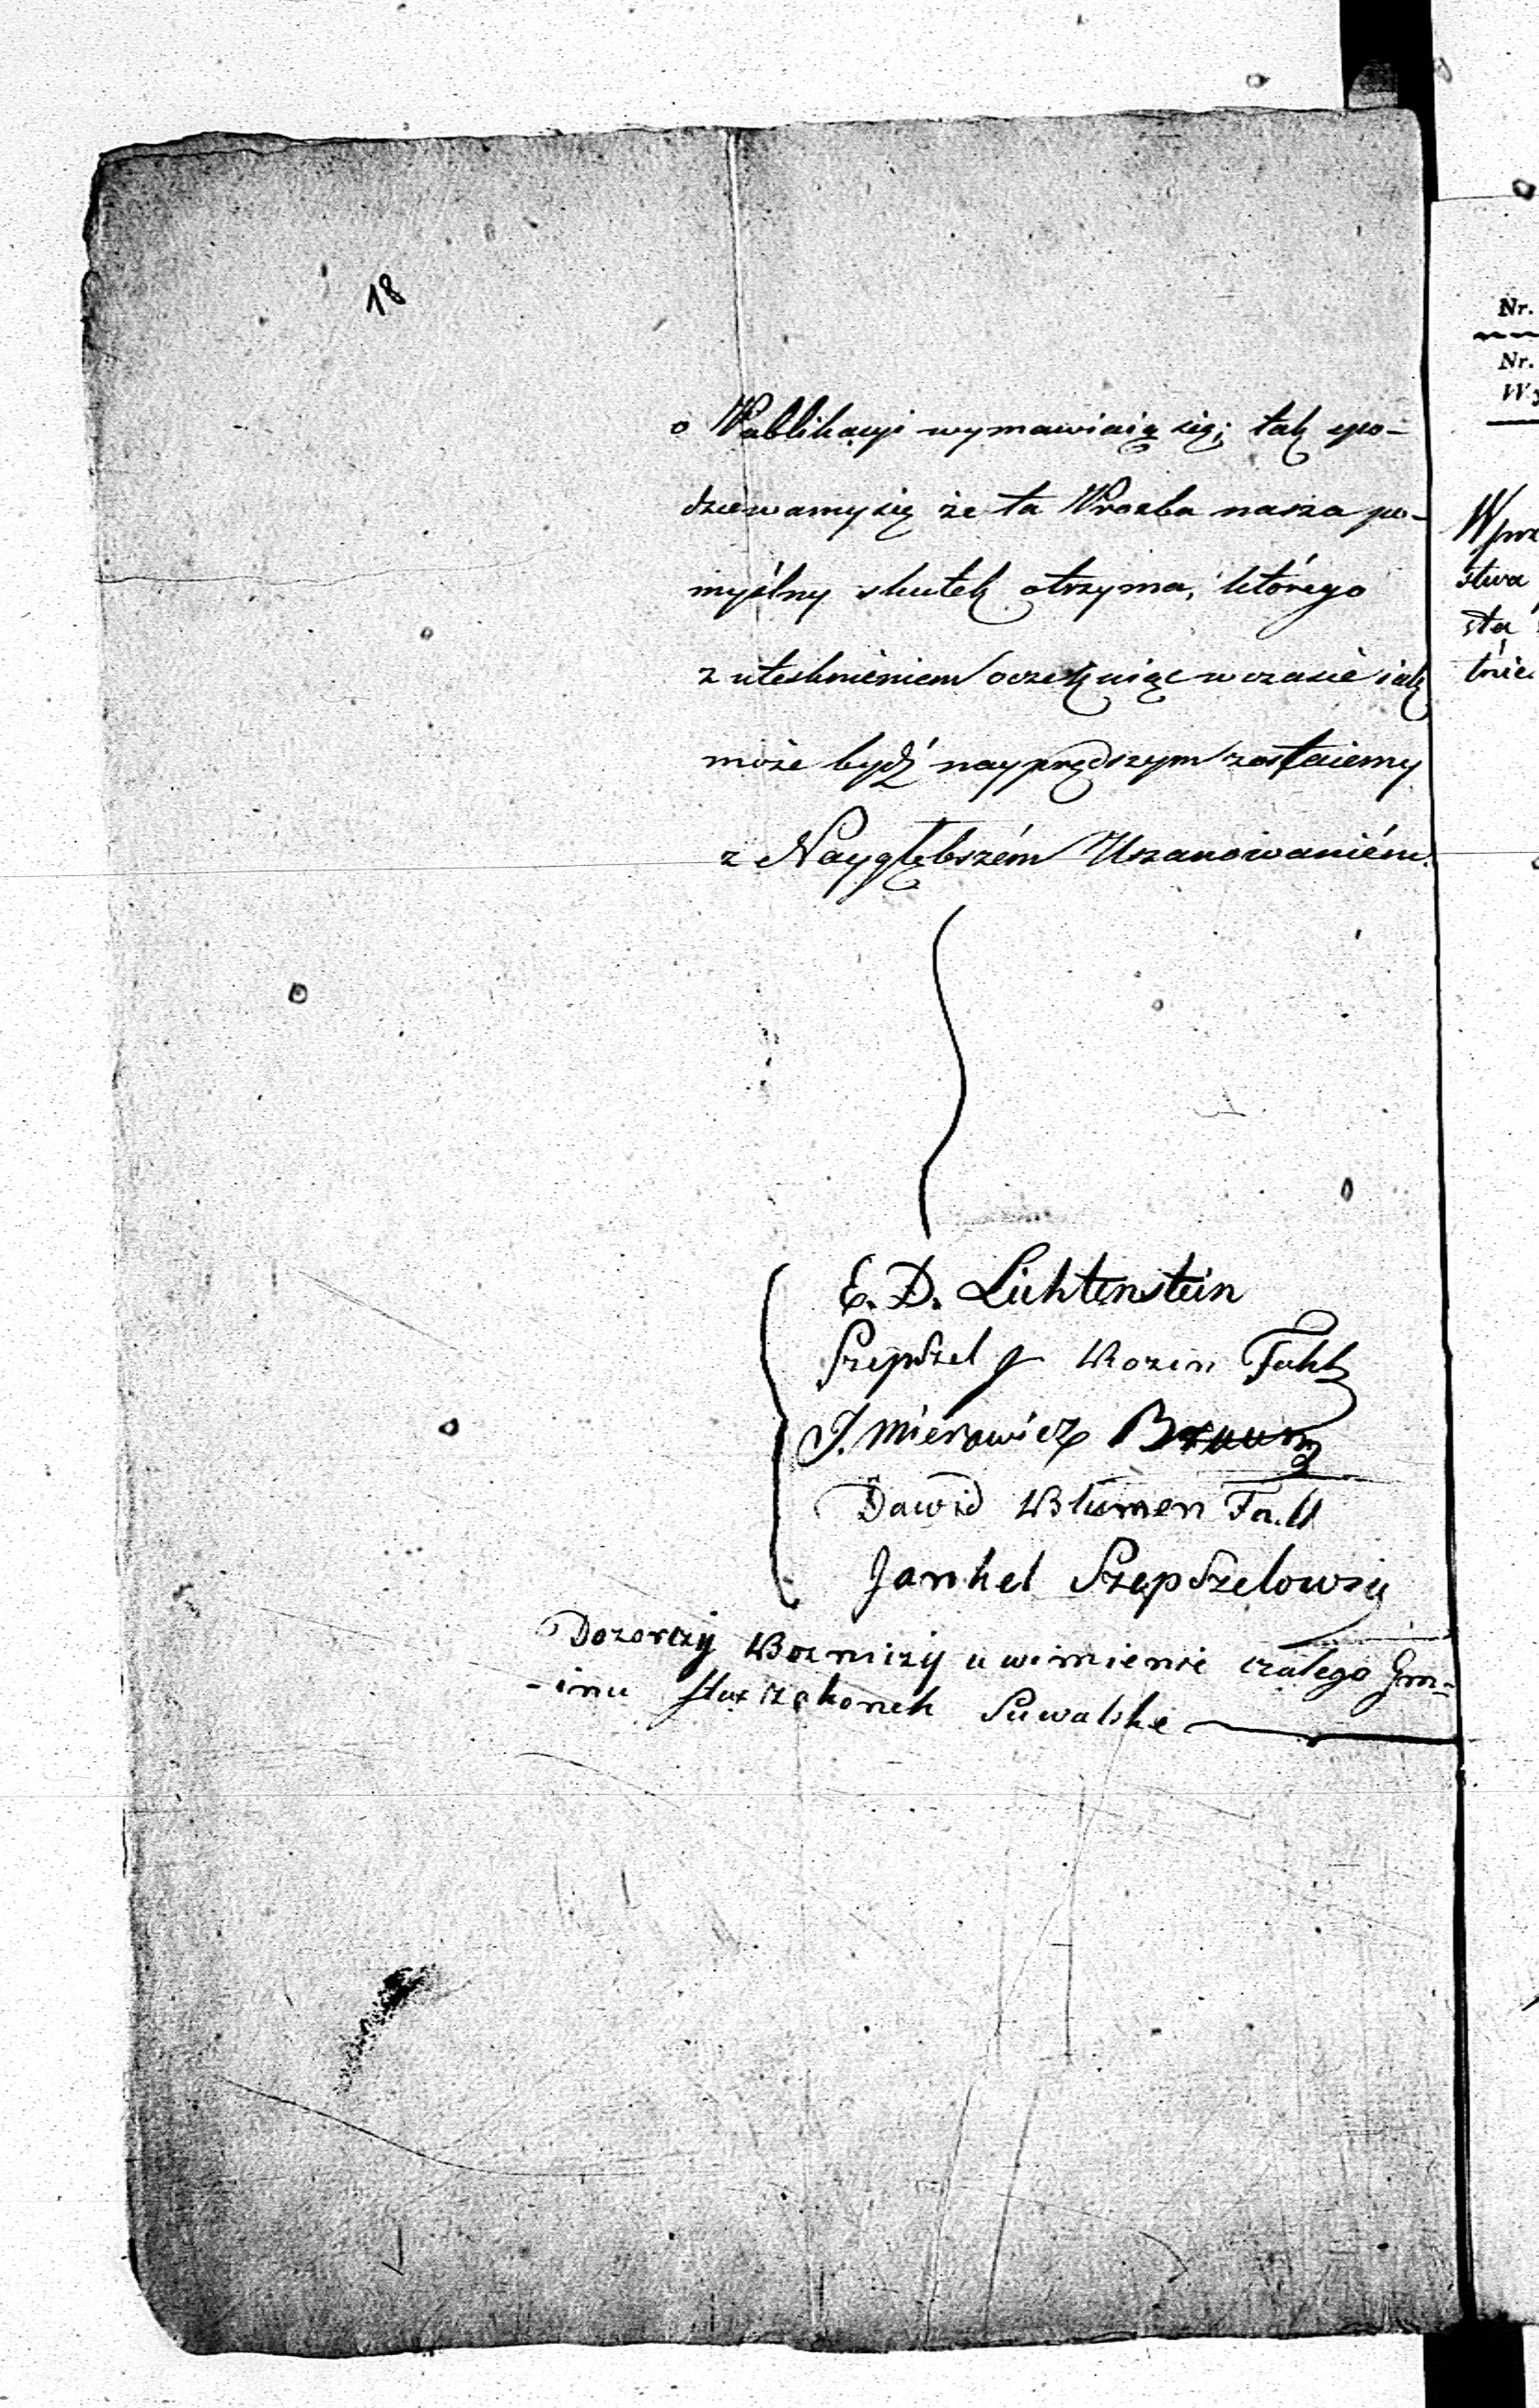 18
o Publikacyi wymawiaią się; tak spo-
dziewamy się że ta Prozba nasza po-
myślny skutek otrzyma, którego
z utesknieniem oczekuiąc w czasie iak
może bydź nayprędszym zostaiemy
z Naygłębszém Uszanowaniém.
E. D. Lichtenstein
Szepszel Rozen
J. Mierowicz Braun
Dawid Blumen
Jankel Szepszelowsy
Dozorczy Boznizy w imienie całego Gm-
-inu Starozakonek Suwalske
Nr.
Nr.
W prz
stwa
sta
tnie